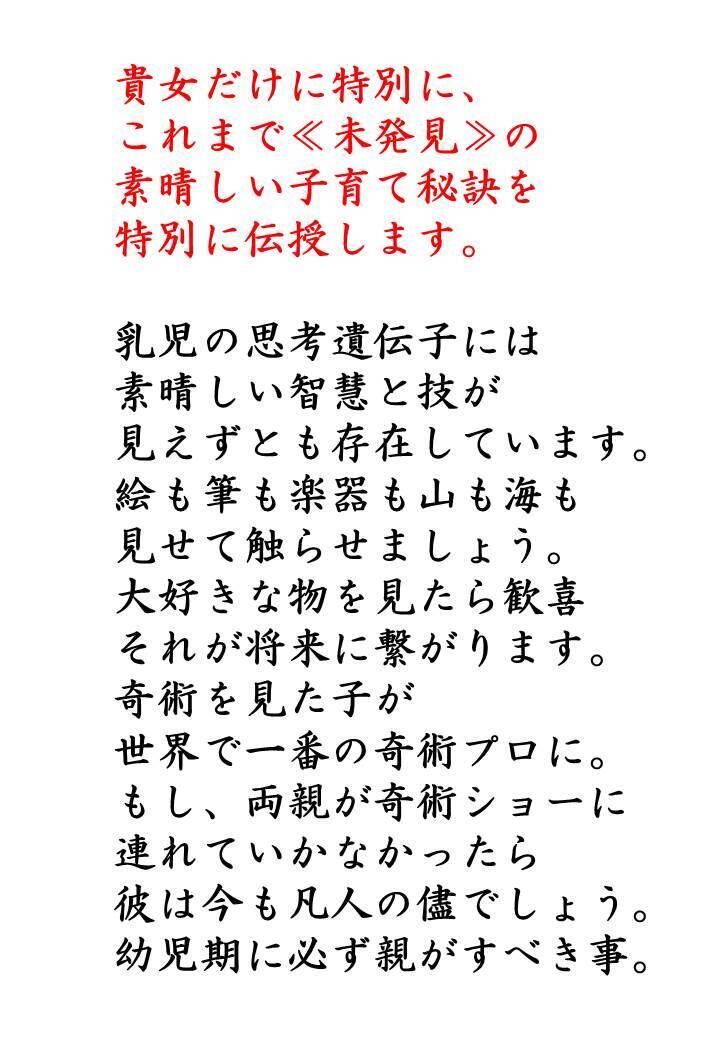 貴女だけに特別に、
これまで≪未発見≫の
素晴しい子育て秘訣を
特別に伝授します。
乳児の思考遺伝子には
素晴しい智慧と技が
見えずとも存在しています。
絵も筆も楽器も山も海も
見せて触らせましょう。
大好きな物を見たら歓喜
それが将来に繋がります。
奇術を見た子が
世界で一番の奇術プロに。
もし、両親が奇術ショーに
連れていかなかったら
彼は今も凡人の儘でしょう。
幼児期に必ず親がすべき事。